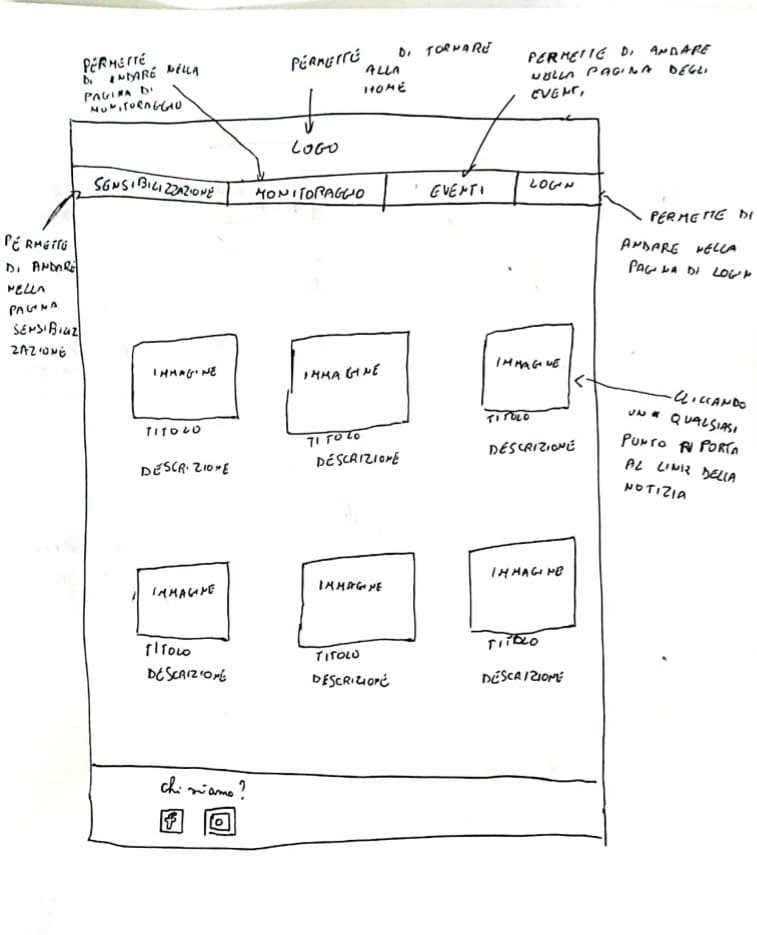 PERMETTE
DI ANDARE NELLA
PAGINA DI
MONITORAGGIO
PERMETTE DI TORNARE
ALLA
HOME
PERMETTE DI ANDARE
NELLA PAGINA DEGLI
EVENTI
LOGO
SENSIBILIZZAZIONE MONITORAGGIO EVENTI LOGIN
PERMETTE
DI ANDARE
NELLA
PAGINA
SENSIBILIZ
ZAZIONE
PERMETTE DI
ANDARE NELLA
PAGINA DI LOGIN
IMMAGINE IMMAGINE IMMAGINE
TITOLO TITOLO TITOLO
DESCRIZIONE DESCRIZIONE DESCRIZIONE
CLICCANDO
UN QUALSIASI
PUNTO PORTA
AL LINK DELLA
NOTIZIA
IMMAGINE IMMAGINE IMMAGINE
TITOLO TITOLO TITOLO
DESCRIZIONE DESCRIZIONE DESCRIZIONE
chi siamo?
f